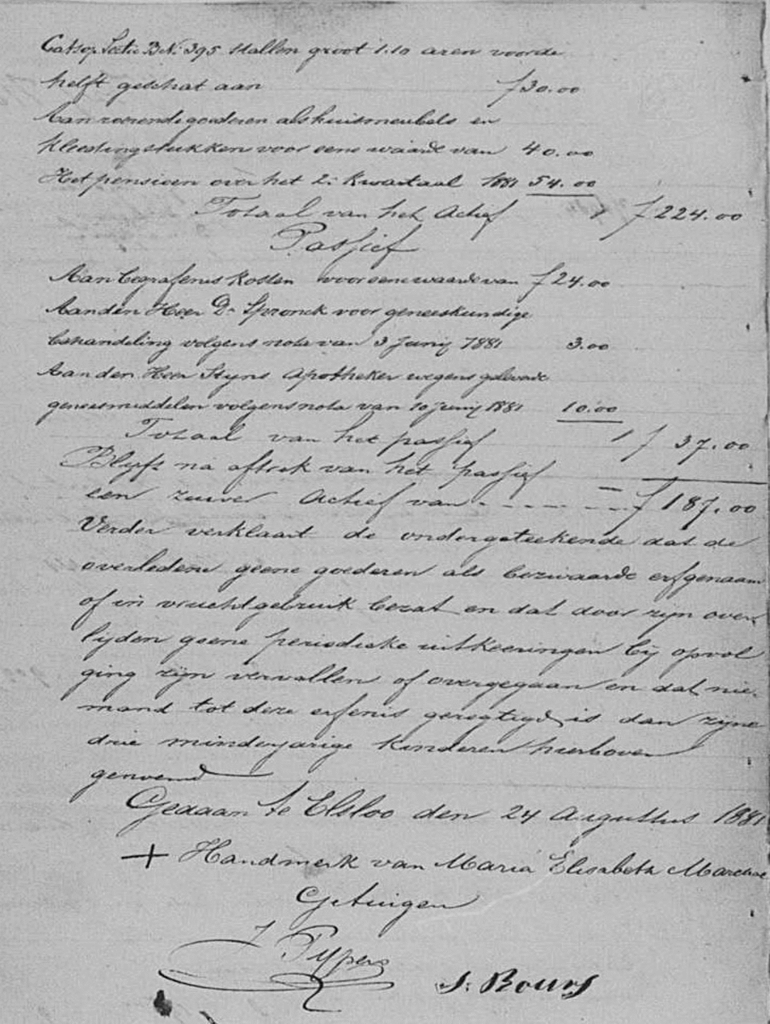 Catsop Sectie B No. 395 Stallen groot 1.10 aren voor de
helft geschat aan f 30.00
Aan roerende goederen als huismeubels en
kleedingstukken voor eene waarde van 40.00
Het pensioen over het 2e kwartaal 1881 54.00
Totaal van het Actief f 224.00
Passief
Aan begrafenis kosten voor eene waarde van f 24.00
Aan den Heer Dr Spronck voor geneeskundige
behandeling volgens nota van 3 Junij 1881 3.00
Aan den Heer Stijns Apotheker wegens geleverde
geneesmiddelen volgens nota van 10 Junij 1881 10.00
Totaal van het passief f 37.00
Blijft na aftrek van het passief
een zuiver Actief van - - - - - - f 187.00
Verder verklaart de ondergeteekende dat de
overledene geene goederen als bezwaarde erfgenaam
of in vruchtgebruik bezat en dat door zijn over-
lijden geene periodieke uitkeeringen bij opvol
ging zijn vervallen of overgegaan en dat nie-
mand tot deze erfenis geregtigd is dan zijne
drie minderjarige kinderen hierboven
genoemd
Gedaan te Elsloo den 24 Augustus 1881
+ Handmerk van Maria Elisabeth
Getuigen
J Pijpers
J. Bours